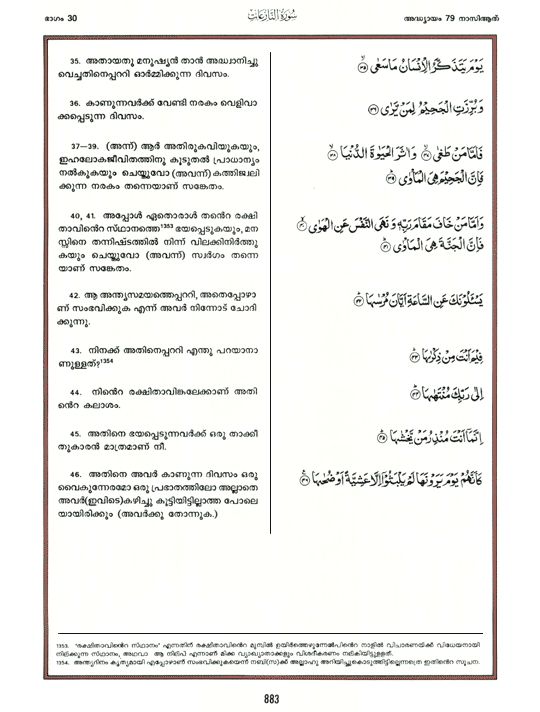 ഭാഗം 30
سُورَةُ النَّازِعَاتِ
അദ്ധ്യായം 79 നാസിആത്
35. അതായതു മനുഷ്യൻ താൻ അദ്ധ്വാനിച്ചു
വെച്ചതിനെപ്പററി ഓർമ്മിക്കുന്ന ദിവസം.
36. കാണുന്നവർക്ക് വേണ്ടി നരകം വെളിവാ
ക്കപ്പെടുന്ന ദിവസം.
37—39. (അന്ന്) ആർ അതിരുകവിയുകയും,
ഇഹലോകജീവിതത്തിനു കൂടുതൽ പ്രാധാന്യം
നൽകുകയും ചെയ്തുവോ (അവന്ന്) കത്തിജ്വലി
ക്കുന്ന നരകം തന്നെയാണ് സങ്കേതം.
40, 41. അപ്പോൾ ഏതൊരാൾ തൻെറ രക്ഷി
താവിൻെറ സ്ഥാനത്തെ1353 ഭയപ്പെടുകയും, മന
സ്സിനെ തന്നിഷ്ടത്തിൽ നിന്ന് വിലക്കിനിർത്തു
കയും ചെയ്തുവോ (അവന്ന്) സ്വർഗം തന്നെ
യാണ് സങ്കേതം.
42. ആ അന്ത്യസമയത്തെപ്പററി, അതെപ്പോഴാ
ണ് സംഭവിക്കുക എന്ന് അവർ നിന്നോട് ചോദി
ക്കുന്നു.
43. നിനക്ക് അതിനെപ്പററി എന്തു പറയാനാ
ണുള്ളത്?1354
44. നിൻെറ രക്ഷിതാവിങ്കലേക്കാണ് അതി
ൻെറ കലാശം.
45. അതിനെ ഭയപ്പെടുന്നവർക്ക് ഒരു താക്കീ
തുകാരൻ മാത്രമാണ് നീ.
46. അതിനെ അവർ കാണുന്ന ദിവസം ഒരു
വൈകുന്നേരമോ ഒരു പ്രഭാതത്തിലോ അല്ലാതെ
അവർ(ഇവിടെ)കഴിച്ചു കൂട്ടിയിട്ടില്ലാത്ത പോലെ
യായിരിക്കും (അവർക്കു തോന്നുക.)
يَوْمَ يَتَذَكَّرُ الْإِنْسَانُ مَا سَعَى ۙ ٣٥
وَبُرِّزَتِ الْجَحِيْمُ لِمَنْ يَّرٰى ٣٦
فَاَمَّا مَنْ طَغٰى ۙ ٣٧ وَاٰثَرَ الْحَيٰوةَ الدُّنْيَا ۙ ٣٨
فَاِنَّ الْجَحِيْمَ هِىَ الْمَاْوٰى ۗ ٣٩
وَاَمَّا مَنْ خَافَ مَقَامَ رَبِّهٖ وَنَهَى النَّفْسَ عَنِ الْهَوٰى ۙ ٤٠
فَاِنَّ الْجَنَّةَ هِىَ الْمَاْوٰى ۗ ٤١
يَسْـَٔلُوْنَكَ عَنِ السَّاعَةِ اَيَّانَ مُرْسٰىهَا ۗ ٤٢
فِيْمَ اَنْتَ مِنْ ذِكْرٰىهَا ۗ ٤٣
اِلٰى رَبِّكَ مُنْتَهٰىهَا ۗ ٤٤
اِنَّمَآ اَنْتَ مُنْذِرُ مَنْ يَّخْشٰىهَا ۗ ٤٥
كَاَنَّهُمْ يَوْمَ يَرَوْنَهَا لَمْ يَلْبَثُوْٓا اِلَّا عَشِيَّةً اَوْ ضُحٰىهَا ۗ ٤٦
1353. 'രക്ഷിതാവിൻെറ സ്ഥാനം' എന്നതിന് രക്ഷിതാവിൻെറ മുമ്പിൽ ഉയിർത്തെഴുന്നേൽപിൻെറ നാളിൽ വിചാരണയ്ക്ക് വിധേയനായി
നില്ക്കുന്ന സ്ഥാനം, അഥവാ ആ നില്പ് എന്നാണ് മിക്ക വ്യാഖ്യാതക്കളും വിശദീകരണം നല്കിയിട്ടുള്ളത്.
1354. അന്ത്യദിനം കൃത്യമായി എപ്പോഴാണ് സംഭവിക്കുകയെന്ന് നബി(സ)ക്ക് അല്ലാഹു അറിയിച്ചുകൊടുത്തിട്ടില്ലെന്നത്രെ ഇതിൻെറ സൂചന.
883